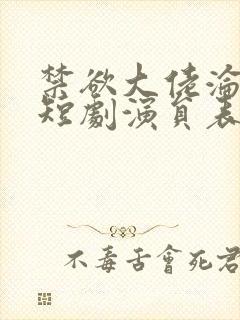 禁欲大佬淪
短劇演員表
不毒舌會死君